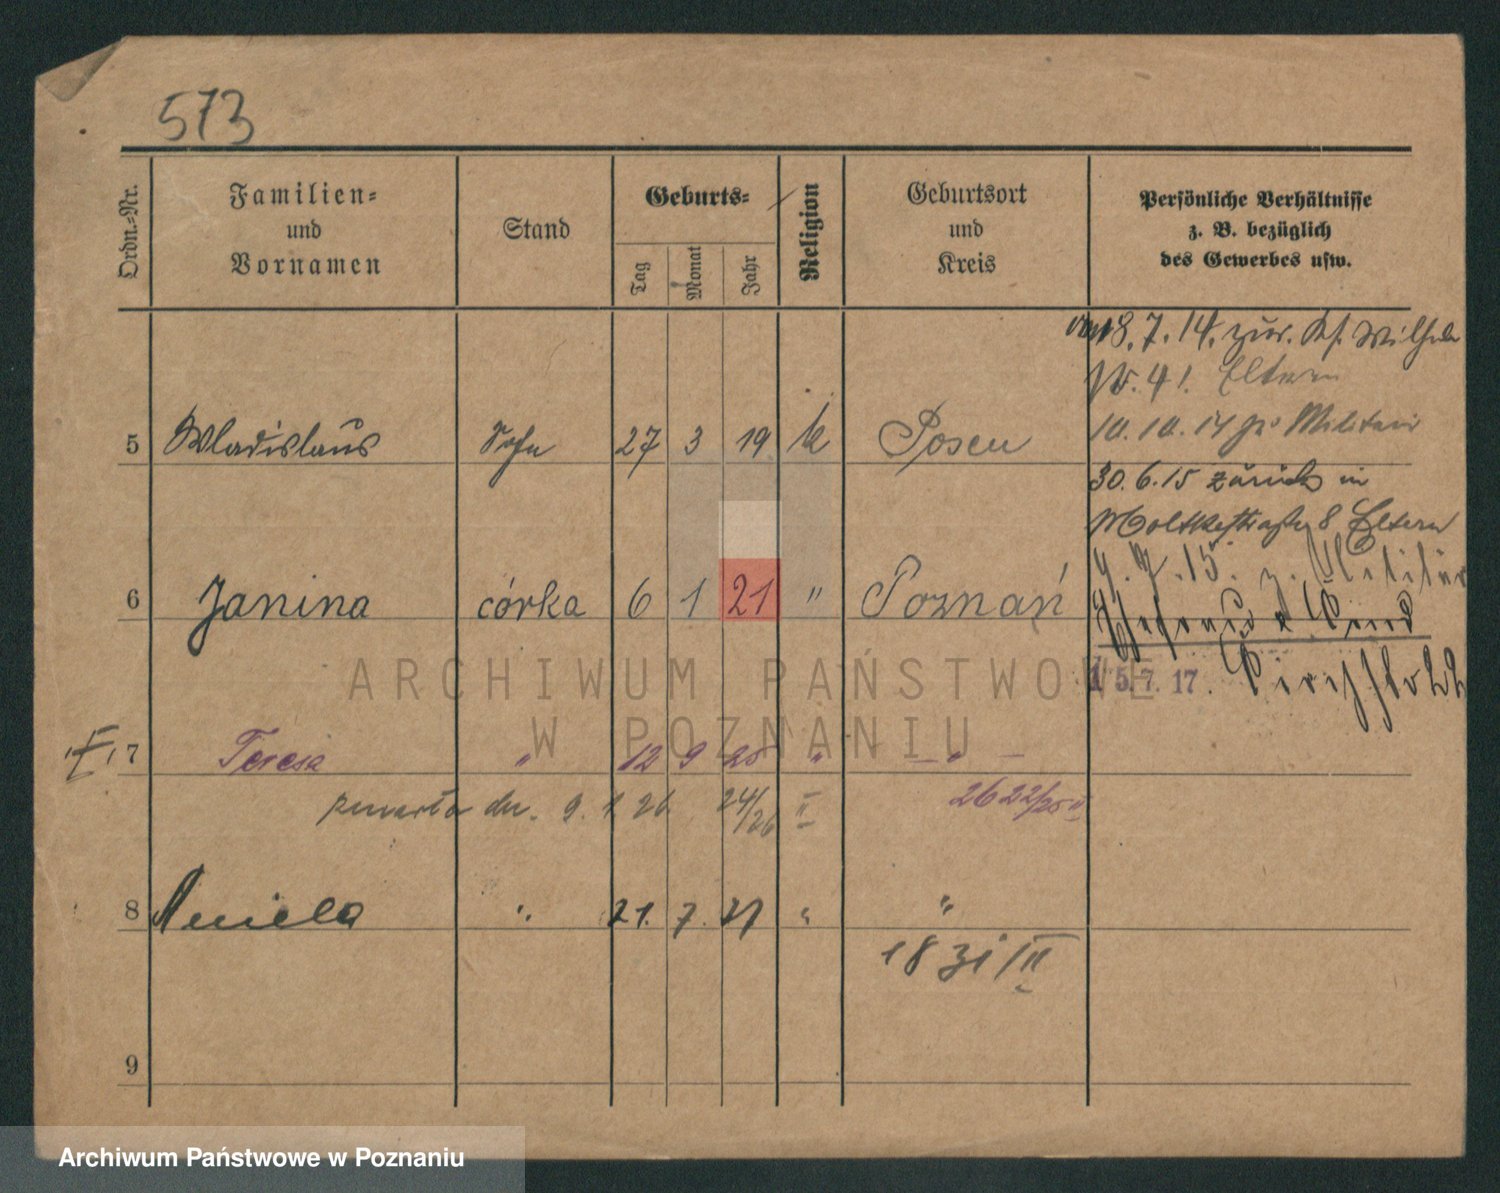 573
Ordn.-Nr.
Familien-
und
Vornamen
Stand
Geburts-
Tag
Monat
Jahr
Religion
Geburtsort
und
Kreis
Persönliche Verhältnisse
z. B. bezüglich
des Gewerbes usw.
18.7.14. zur. Wilhelm
Eltern
5 Wladislaus Sohn 27 3 19 k Posen
10.10.14 zu Militär
30.6.15 zurück in
Moltkestraße 8 Eltern
6 Janina córka 6 1 21 " Poznań
15.7.17.
ARCHIWUM PAŃSTWOWE
W POZNANIU
7 Teresa " 12 9 25 " – " –
dn. 9.1.26. 24/26 II 2622/25 II
8 Aniela " 21. 7. 27 " "
1831/II
9
Archiwum Państwowe w Poznaniu